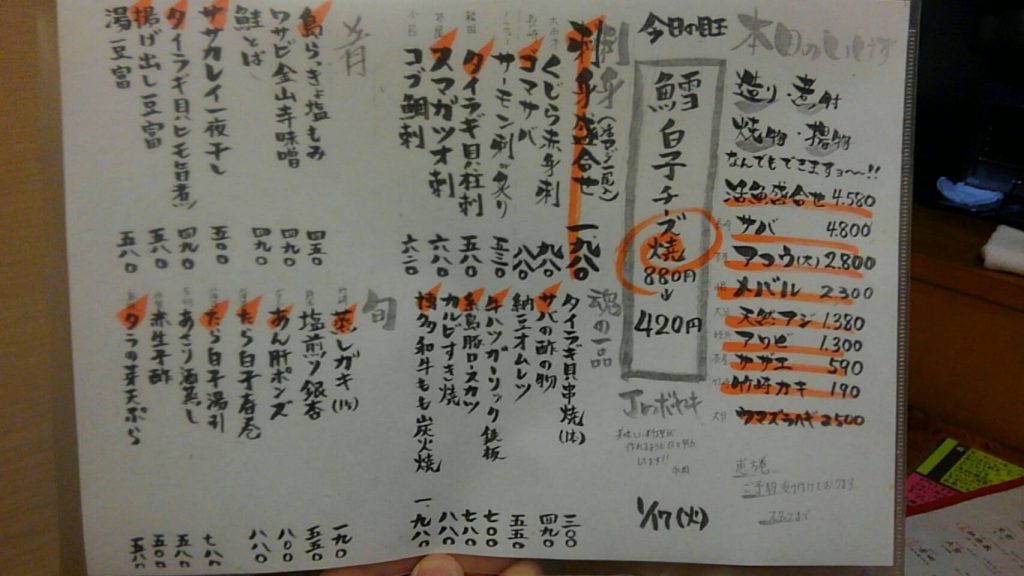 本日のいけす
造り・煮付
焼物・揚物
なんでもできますョ〜!!
活魚盛合せ 4.580
サバ 4.800
アコウ(大) 2.800
メバル 2.300
天然アジ 1.380
アワビ 1.300
サザエ 590
竹崎カキ 190
大分 ウマヅラハギ 2500
恵方巻
ご予約受け付けております
今日の目玉
鱈白子チーズ焼
880円
↓
420円
Jrのボヤキ
1/17(火)
刺身盛合せ 一、九八〇
くじら赤身刺 九八〇
長崎 ゴマサバ 八八〇
サーモン刺or炙り 五三〇
タイラギ貝貝柱刺 五八〇
スマガツオ刺 六八〇
コブ鯛刺 六二〇
魂の一品
タイラギ貝串焼(1本) 三〇〇
サバの酢の物 四九〇
納豆オムレツ 五五〇
牛ハツガーリック鉄板 七〇〇
糸島豚ロースカツ 七八〇
カルビすき焼 八八〇
博多和牛もも炭火焼 一、九八〇
肴
島らっきょ塩もみ 四五〇
ワサビ金山寺味噌 四九〇
鮭とば 四九〇
ササカレイ一夜干し 五八〇
タイラギ貝ヒモ旨煮 四九〇
揚げ出し豆富 五八〇
湯豆富 五八〇
旬
竹崎 蒸しガキ(1ケ) 一九〇
塩煎り銀杏 五五〇
あん肝ポンズ 八〇〇
たら白子春巻 八八〇
たら白子湯引 七八〇
あさり酒蒸し 五八〇
赤生子酢 五〇〇
タラの芽天ぷら 五八〇